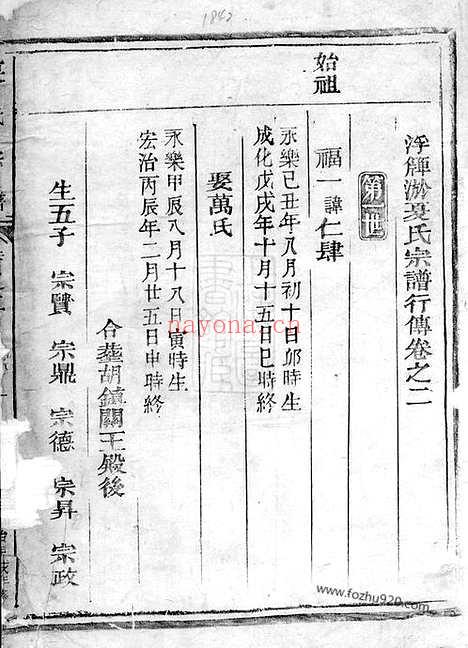 1842
浮嶂㳺夏氏宗譜行傳卷之二
第一世
始祖
福一諱仁肆
永樂己丑年八月初十日卯時生
成化戊戌年十月十五日巳時終
娶萬氏
永樂甲辰八月十八日寅時生
宏治丙辰年二月廿五日申時終
合塟胡鎮關王殿後
生五子 宗賢 宗鼎 宗德 宗昇 宗政
nayona.cn
www.fozhu920.com